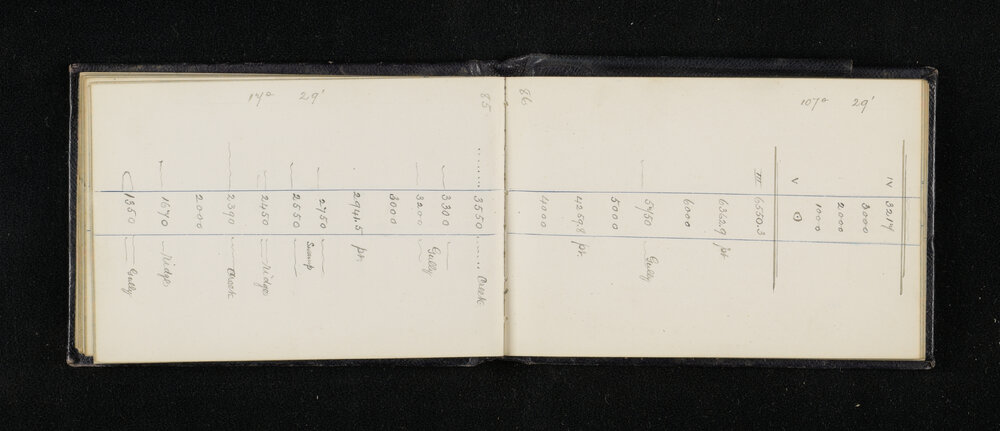 107° 29'
IV 3217
3000
2000
1000
V
III 6550.3
6362.9 pt
6000
5750 Gully
5000
4259.8 pt
4000
86
85
3550 Creek
3300
3200 Gully
3000
2944.5 pt
2750
2550 Swamp
2450 ridge
2390 Creek
2000
1670 ridge
1350 Gully
29'